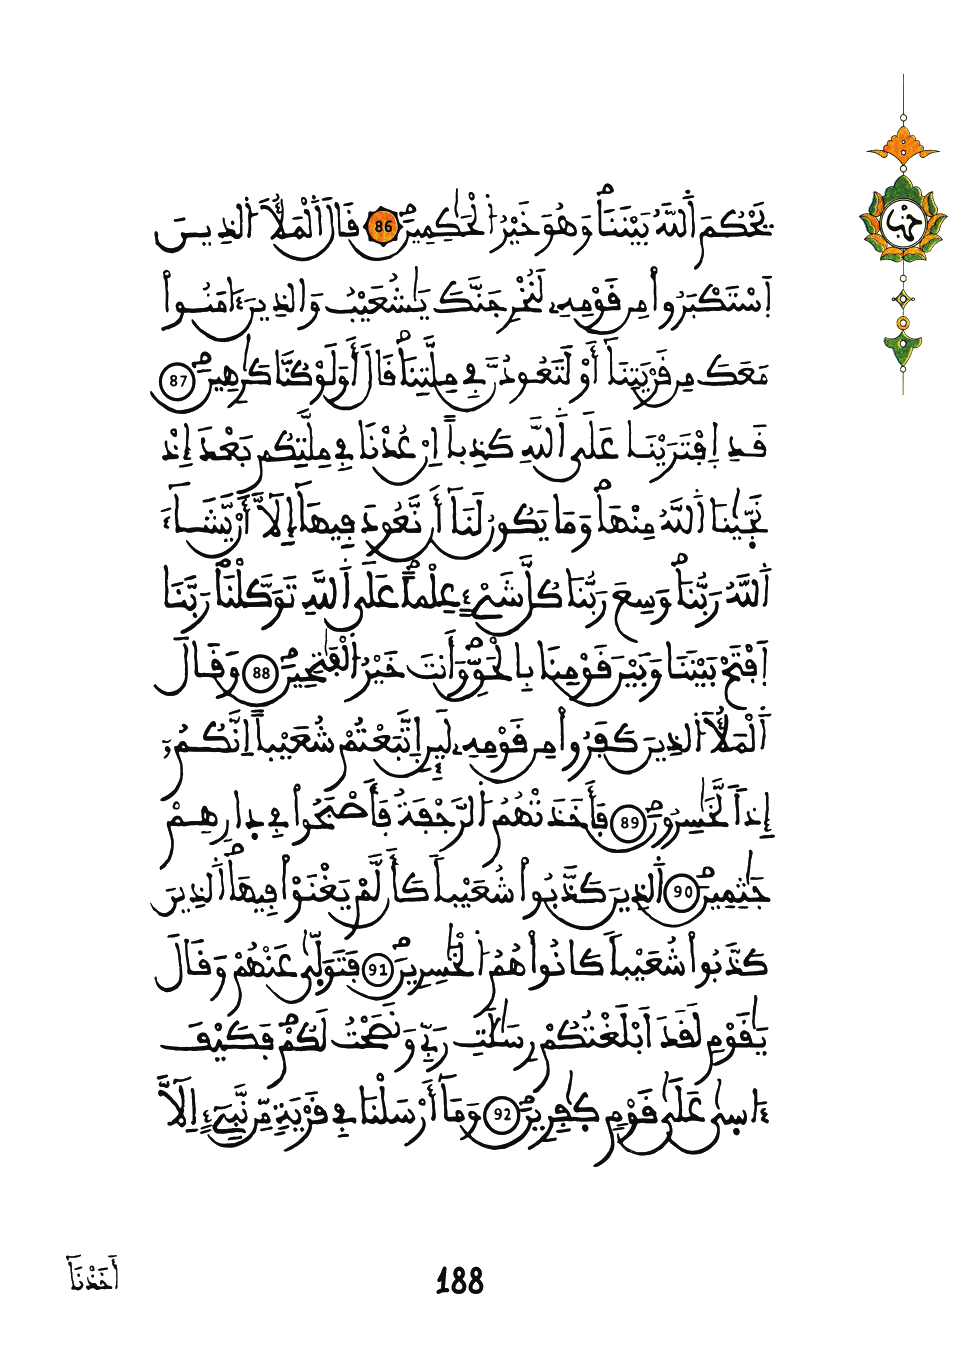 حزب
يَحْكُمَ اَ۬للَّهُ بَيْنَنَاۖ وَهُوَ خَيْرُ اُ۬لْحَٰكِمِينَۖ 86 قَالَ اَ۬لْمَلَأُ اُ۬لذِينَ
اَ۪سْتَكْبَرُواْ مِن قَوْمِهِۦ لَنُخْرِجَنَّكَ يَٰشُعَيْبُ وَالذِينَ ءَامَنُواْ
مَعَكَ مِن قَرْيَتِنَآ أَوْ لَتَعُودُنَّ فِے مِلَّتِنَاۖ قَالَ أَوَلَوْ كُنَّا كَٰرِهِينَۖ 87
قَدِ اِ۪فْتَرَيْنَا عَلَي اَ۬للَّهِ كَذِباً اِنْ عُدْنَا فِے مِلَّتِكُم بَعْدَ إِذْ
نَجَّيٰنَا اَ۬للَّهُ مِنْهَاۖ وَمَا يَكُونُ لَنَآ أَن نَّعُودَ فِيهَآ إِلَّآ أَنْ يَّشَآءَ
اَ۬للَّهُ رَبُّنَاۖ وَسِعَ رَبُّنَا كُلَّ شَےْءٍ عِلْماًۖ عَلَي اَ۬للَّهِ تَوَكَّلْنَاۖ رَبَّنَا
اَ۪فْتَحْ بَيْنَنَا وَبَيْنَ قَوْمِنَا بِالْحَقِّۖ وَأَنتَ خَيْرُ اُ۬لْفَٰتِحِينَۖ 88 وَقَالَ
اَ۬لْمَلَأُ اُ۬لذِينَ كَفَرُواْ مِن قَوْمِهِۦ لَئِنِ اِ۪تَّبَعْتُمْ شُعَيْباً اِنَّكُمُۥٓ
إِذاٗ لَّخَٰسِرُونَۖ 89 فَأَخَذَتْهُمُ اُ۬لرَّجْفَةُ فَأَصْبَحُواْ فِے دِارِهِمْ
جَٰثِمِينَۖ 90 اَ۬لذِينَ كَذَّبُواْ شُعَيْباٗ كَأَن لَّمْ يَغْنَوْاْ فِيهَاۖ اَ۬لذِينَ
كَذَّبُواْ شُعَيْباٗ كَانُواْ هُمُ اُ۬لْخَٰسِرِينَۖ 91 فَتَوَلّ۪يٰ عَنْهُمْ وَقَالَ
يَٰقَوْمِ لَقَدَ اَبْلَغْتُكُمْ رِسَٰلَٰتِ رَبِّے وَنَصَحْتُ لَكُمْۖ فَكَيْفَ
ءَاس۪يٰ عَلَيٰ قَوْمٖ كٰ۪فِرِينَۖ 92 وَمَآ أَرْسَلْنَا فِے قَرْيَةٖ مِّن نَّبِےٓءٍ اِلَّآ
أَخَذْنَآ
188